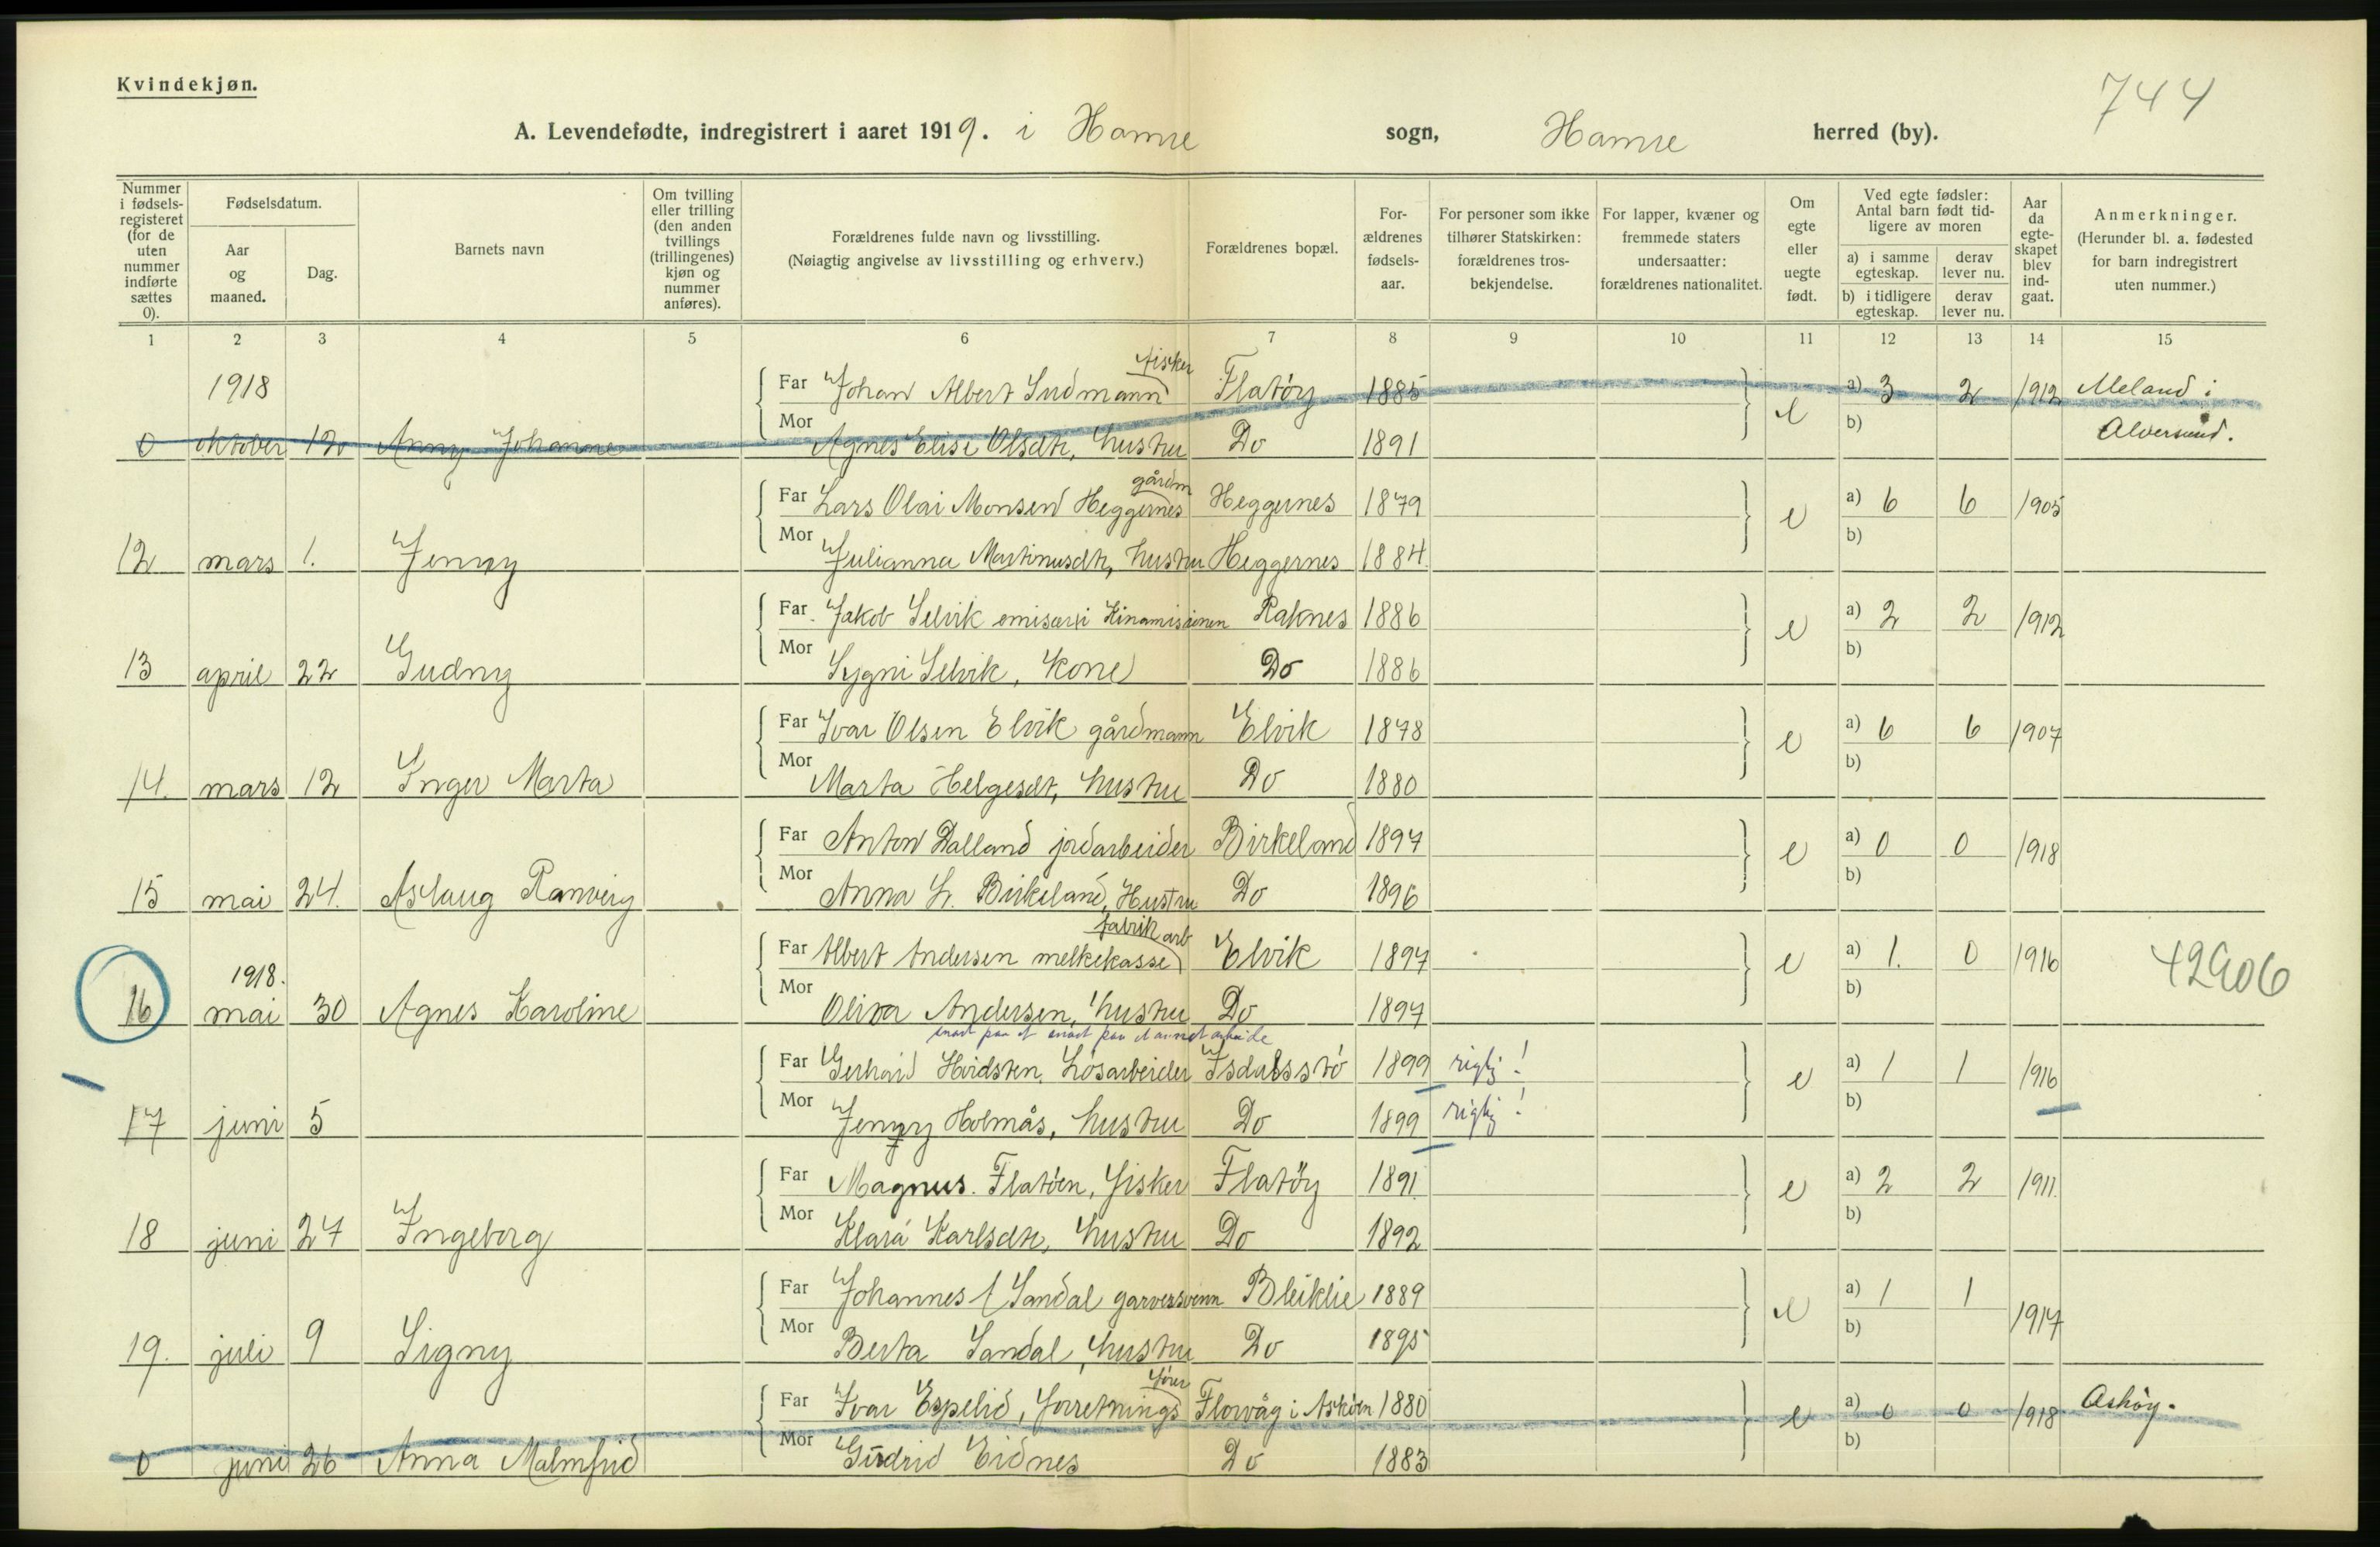 Kvindekjøn.
744
A. Levendefødte, indregistrert i aaret 1919. i Hamre sogn, Hamre herred (by).
Nummer i fødsels-registeret (for de uten nummer indførte sættes 0).
Fødselsdatum.
Aar og maaned.
Dag.
Barnets navn
Om tvilling eller trilling (den anden tvillings (trillingenes) kjøn og nummer anføres).
Forældrenes fulde navn og livsstilling.
(Nøiagtig angivelse av livsstilling og erhverv.)
Forældrenes bopæl.
For-ældrenes fødsels-aar.
For personer som ikke tilhører Statskirken: forældrenes tros-bekjendelse.
For lapper, kvæner og fremmede staters undersaatter: forældrenes nationalitet.
Om egte eller uegte født.
Ved egte fødsler: Antal barn født tid-ligere av moren
a) i samme egteskap. derav lever nu.
b) i tidligere egteskap. derav lever nu.
Aar da egte-skapet blev ind-gaat.
Anmerkninger.
(Herunder bl. a. fødested for barn indregistrert uten nummer.)
1 2 3 4 5 6 7 8 9 10 11 12 13 14 15
fisker
1918 Far Johan Albert Sudmann Flatöy 1885 e a) 3 2 1912 Meland i
0 oktober 12 Anny Johanne Mor Agnes Elise Olsdtr, hustru Do 1891 b) Alversund.
gårdm
Far Lars Olai Monsen Heggernes Heggernes 1879 e a) 6 6 1905
12 mars 1. Jenny Mor Julianna Martinusdtr, hustru Heggernes 1884. b)
Far Jakob Selvik emisær i Kinamisionen Raknes 1886 e a) 2 2 1912
13 april 22 Gudny Mor Sygni Selvik, Kone Do 1886 b)
Far Ivar Olsen Elvik gårdmann Elvik 1878 e a) 6 6 1907
14. mars 12 Inger Marta Mor Marta Helgesdt, hustru Do 1880 b)
Far Anton Dalland jordarbeider Birkeland 1897 e a) 0 0 1918
15 mai 24. Aslaug Ranveig Mor Anna L. Birkeland, Hustru Do 1896 b)
fabrik arb
1918. Far Albert Andersen melkekasse Elvik 1897 e a) 1. 0 1916 42906
16 mai 30 Agnes Karoline Mor Oliva Andersen, hustru Do 1897 b)
snart paa et snart paa et annet arbeide
Far Gerhard Hvidsten, Løsarbeider Isdalsstö 1899 rigtig! e a) 1 1 1916
17 juni 5 Mor Jenny Holmås, hustru Do 1899 rigtig! b)
Far Magnus. Flatöen, fisker Flatöy 1891 e a) 2 2 1911.
18 juni 27 Ingeborg Mor Klara Karlsdtr, hustru Do 1892 b)
Far Johannes Sandal garversvenn Bleiklie 1889 e a) 1 1 1917
19. juli 9 Signy Mor Berta Sandal, hustru Do 1895 b)
förer
Far Ivar Espelid, forretnings Florvåg i Asköen 1880 e a) 0 0 1918 Asköy.
0 juni 26 Anna Malmfrid Mor Gudrid Eidnes Do 1883 b)